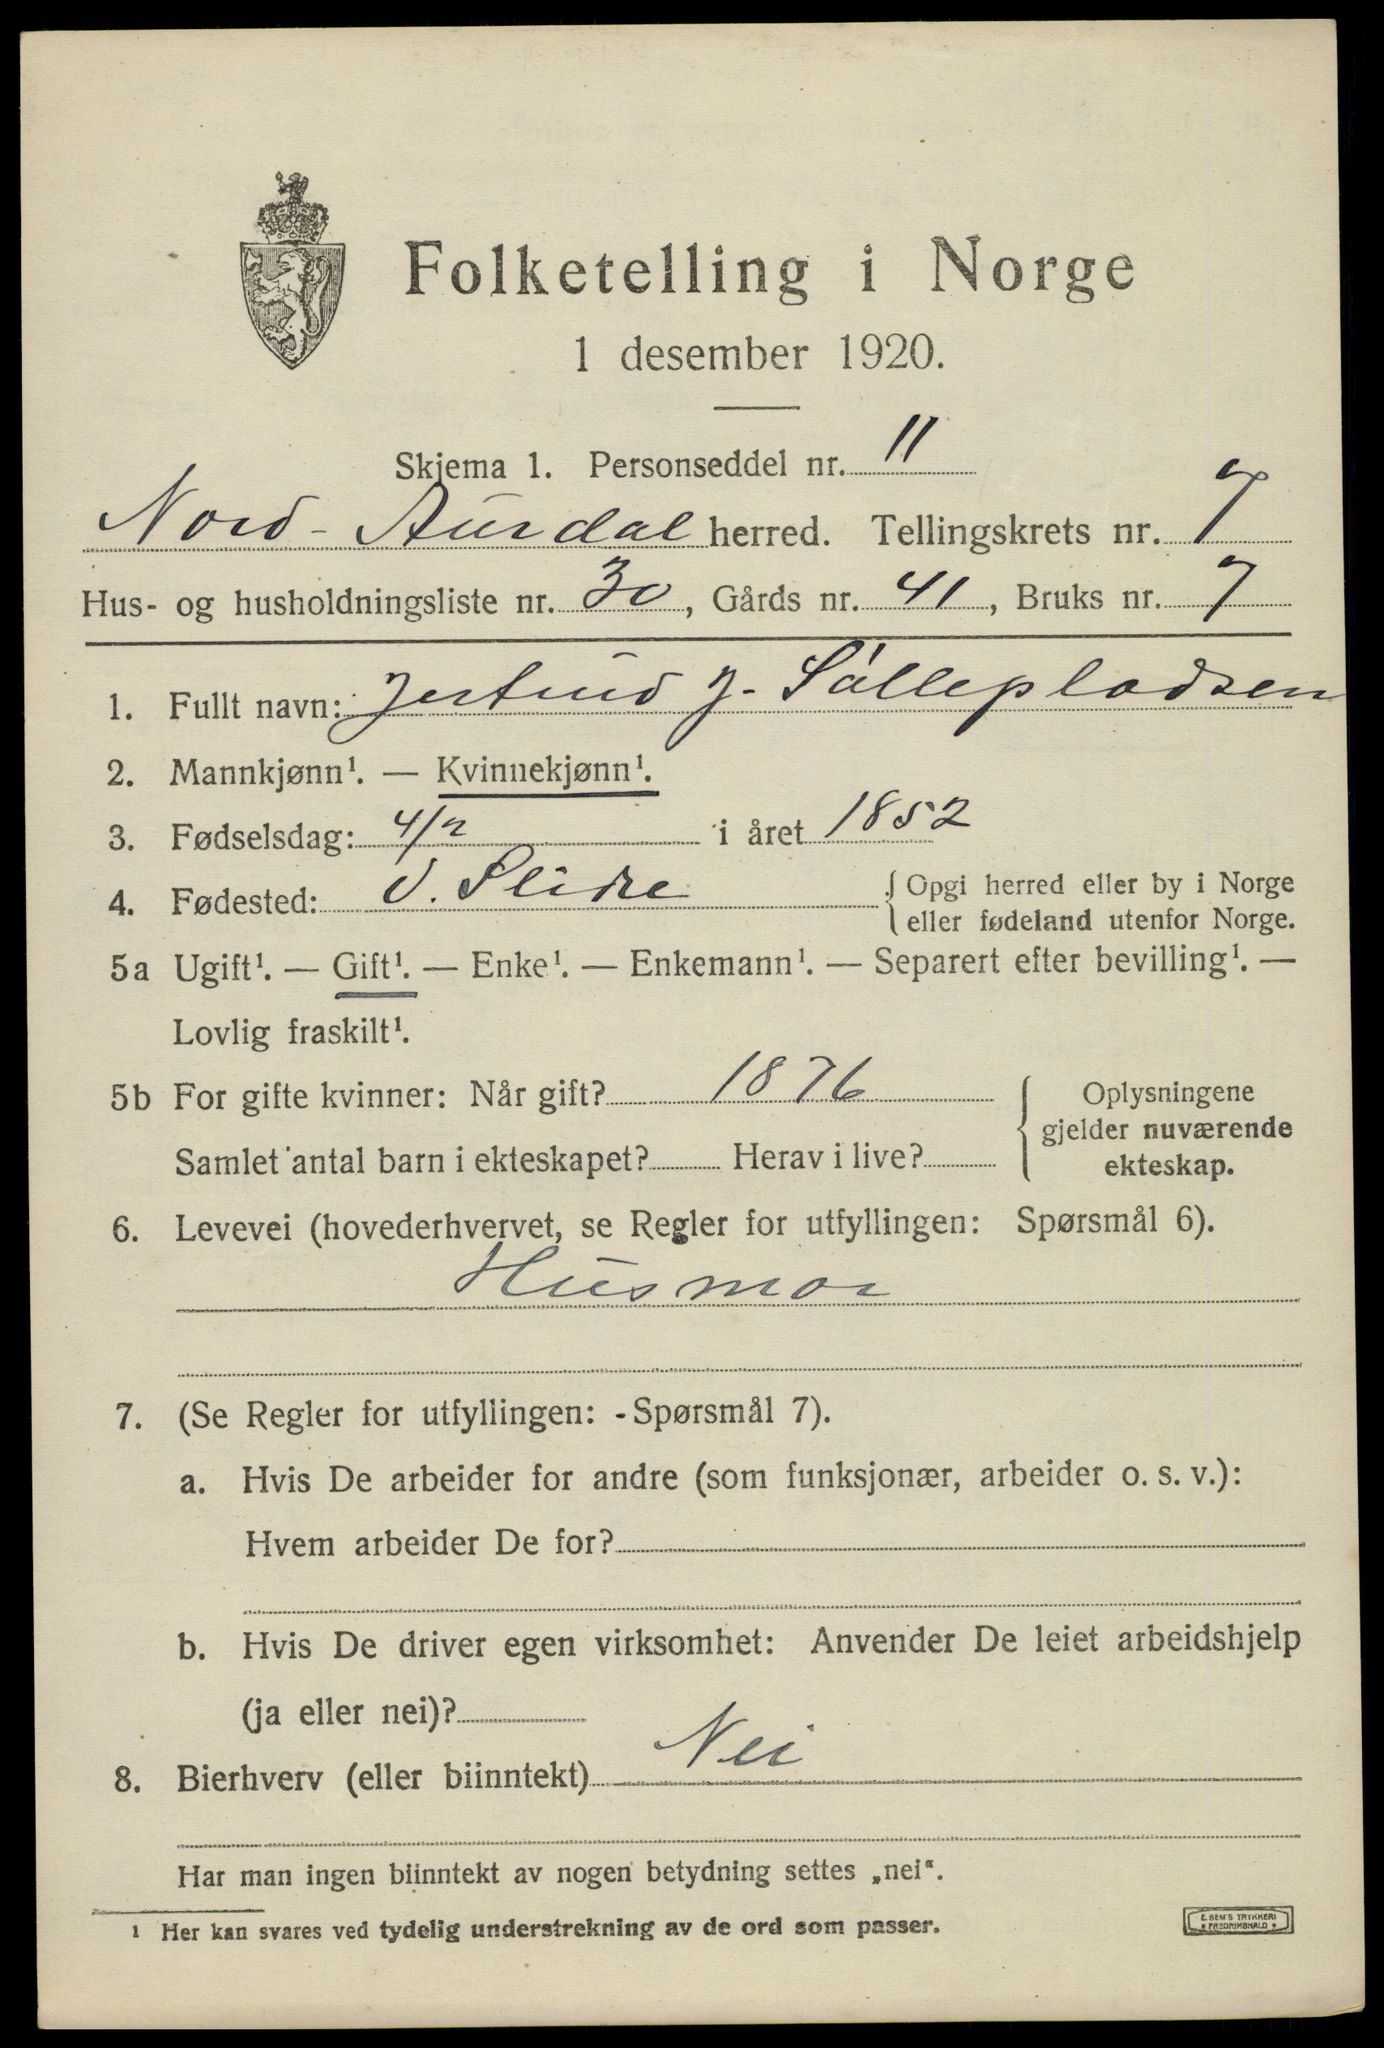 Folketelling i Norge
1 desember 1920.
Skjema 1. Personseddel nr. 11
Nord-Aurdal herred. Tellingskrets nr. 7
Hus- og husholdningsliste nr. 30, Gårds nr. 41, Bruks nr. 7
1. Fullt navn: Jertrud J. Sållepladsen
2. Mannkjønn¹. — Kvinnekjønn¹.
3. Fødselsdag: 4/2 i året 1852
4. Fødested: V. Slidre { Opgi herred eller by i Norge
eller fødeland utenfor Norge.
5a Ugift¹. — Gift¹. — Enke¹. — Enkemann¹. — Separert efter bevilling¹. —
Lovlig fraskilt¹.
5b For gifte kvinner: Når gift? 1876
Samlet antal barn i ekteskapet? Herav i live?
Oplysningene
gjelder nuværende
ekteskap.
6. Levevei (hovederhvervet, se Regler for utfyllingen: Spørsmål 6).
Husmor
7. (Se Regler for utfyllingen: Spørsmål 7).
a. Hvis De arbeider for andre (som funksjonær, arbeider o. s. v.):
Hvem arbeider De for?
b. Hvis De driver egen virksomhet: Anvender De leiet arbeidshjelp
(ja eller nei)?
8. Bierhverv (eller biinntekt) Nei
Har man ingen biinntekt av nogen betydning settes „nei“.
¹ Her kan svares ved tydelig understrekning av de ord som passer.
E. SEM'S TRYKKERI
FREDRIKSHALD